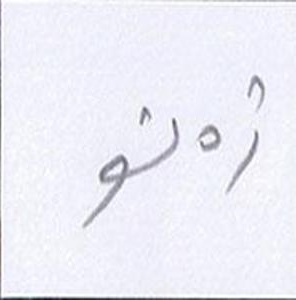 ژەنو